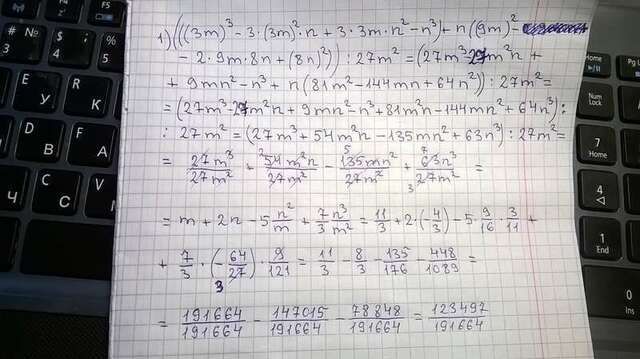 1) (((3m)³ - 3·(3m)²·n + 3·3m·n² - n³) + n(9m)² -
- 2·9m·8n + (8n)²)) : 27m² = (27m³ 27m²n +
+ 9mn² - n³ + n(81m² - 144mn + 64n²)) : 27m² =
= (27m³ - 27m²n + 9mn² - n³ + 81m²n - 144mn² + 64n³) :
: 27m² = (27m³ + 54m²n - 135mn² + 63n³) : 27m² =
= 27m³/27m² + 54m²n/27m² - 135mn²/27m² + 63n³/27m² =
= m + 2n - 5 n²/m + 7/3 n³/m² = 11/3 + 2·(-4/3) - 5 9/16 · 3/11 +
+ 7/3 · (-64/27) · 9/121 = 11/3 - 8/3 - 135/176 - 448/1089 =
= 191664/191664 - 147015/191664 - 78848/191664 = 123497/191664
№
3
%
5
4
$
F4
F5
Home
Pg
Num
Lock
7
Home
4
1
End